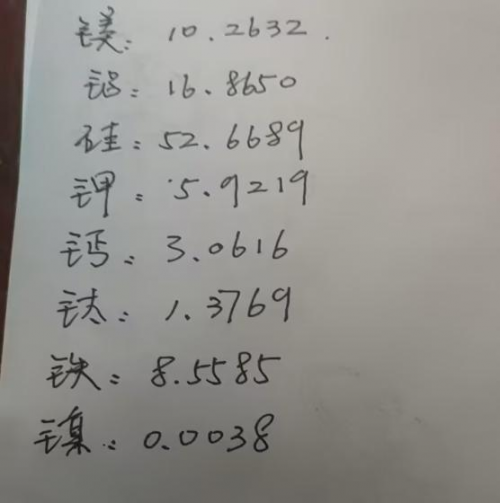 镁: 10.2632.
铝: 16.8650
硅: 52.6689
钾: 5.9219
钙: 3.0616
钛: 1.3769
铁: 8.5585
镍: 0.0038